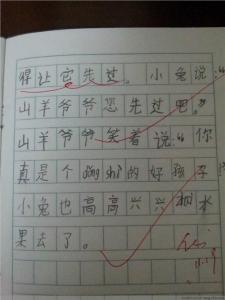 得让它先过。小兔说:“
山羊爷爷您先过吧。”
山羊爷爷笑着说:“你
真是个dǒng shì的好孩子
小兔也高高兴兴 水
果去了。